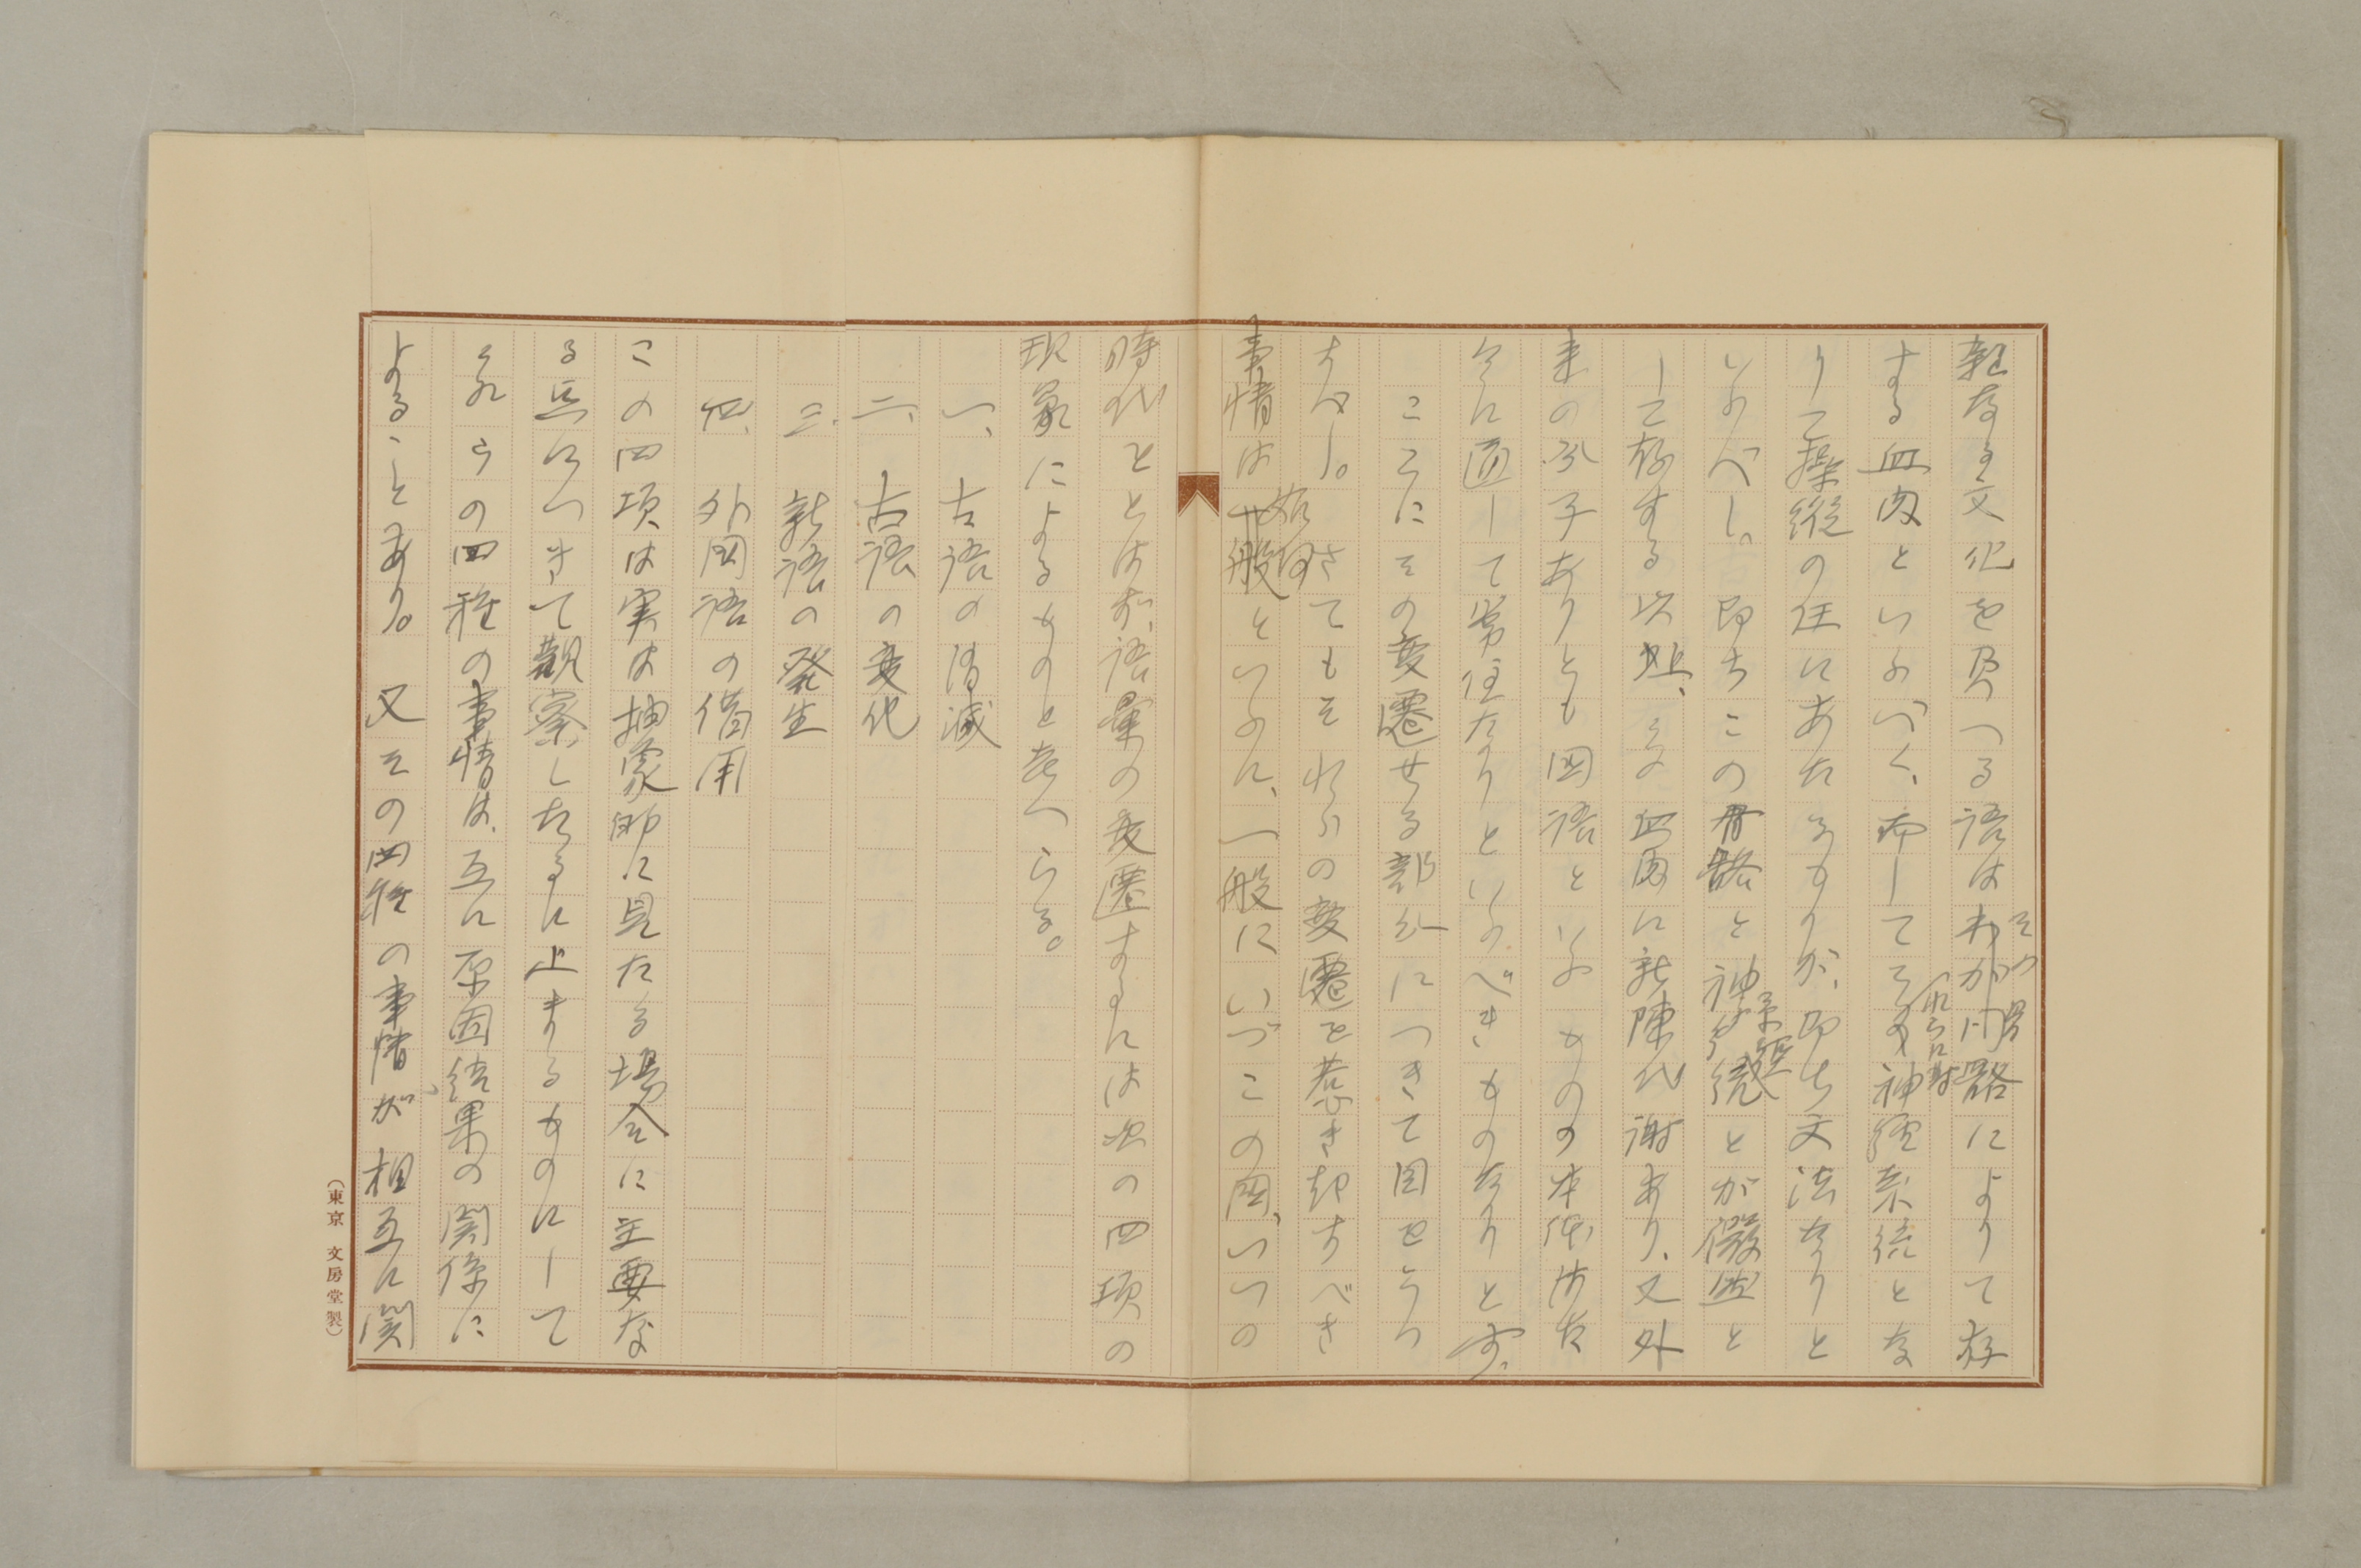 雑なる文化を負へる語はその骨骼によりて存
する血肉といふべく、而してその神経系統とな
りて操縦の任にあたるものが、即ち文法なりと
いふべし。即ちこの骨骼と神経系統とが儼然と
して存する以上、その血肉に新陳代謝あり、又外
来の分子ありとも国語といふものの本体は古
今に通して常住なりといふべきものなりとす。
ここにその変遷せる部分につきて因をもつ
すべし。さてもそれらの変遷を惹き起すべき
事情は如何といふに、一般にいづこの国、いつの
時代ととはず、語彙の変遷するには次の四項の
現象によるものと考へらる。
一、古語の消滅
二、古語の変化
三、新語の発生
四、外国語の借用
この四項は実は抽象的に見たる場合に主要な
る点につきて観察したるに止まるものにして
それらの四種の事情は、互に原因結果の関係に
よることあり。又その四種の事情が相互に関
（東京 文房堂製）